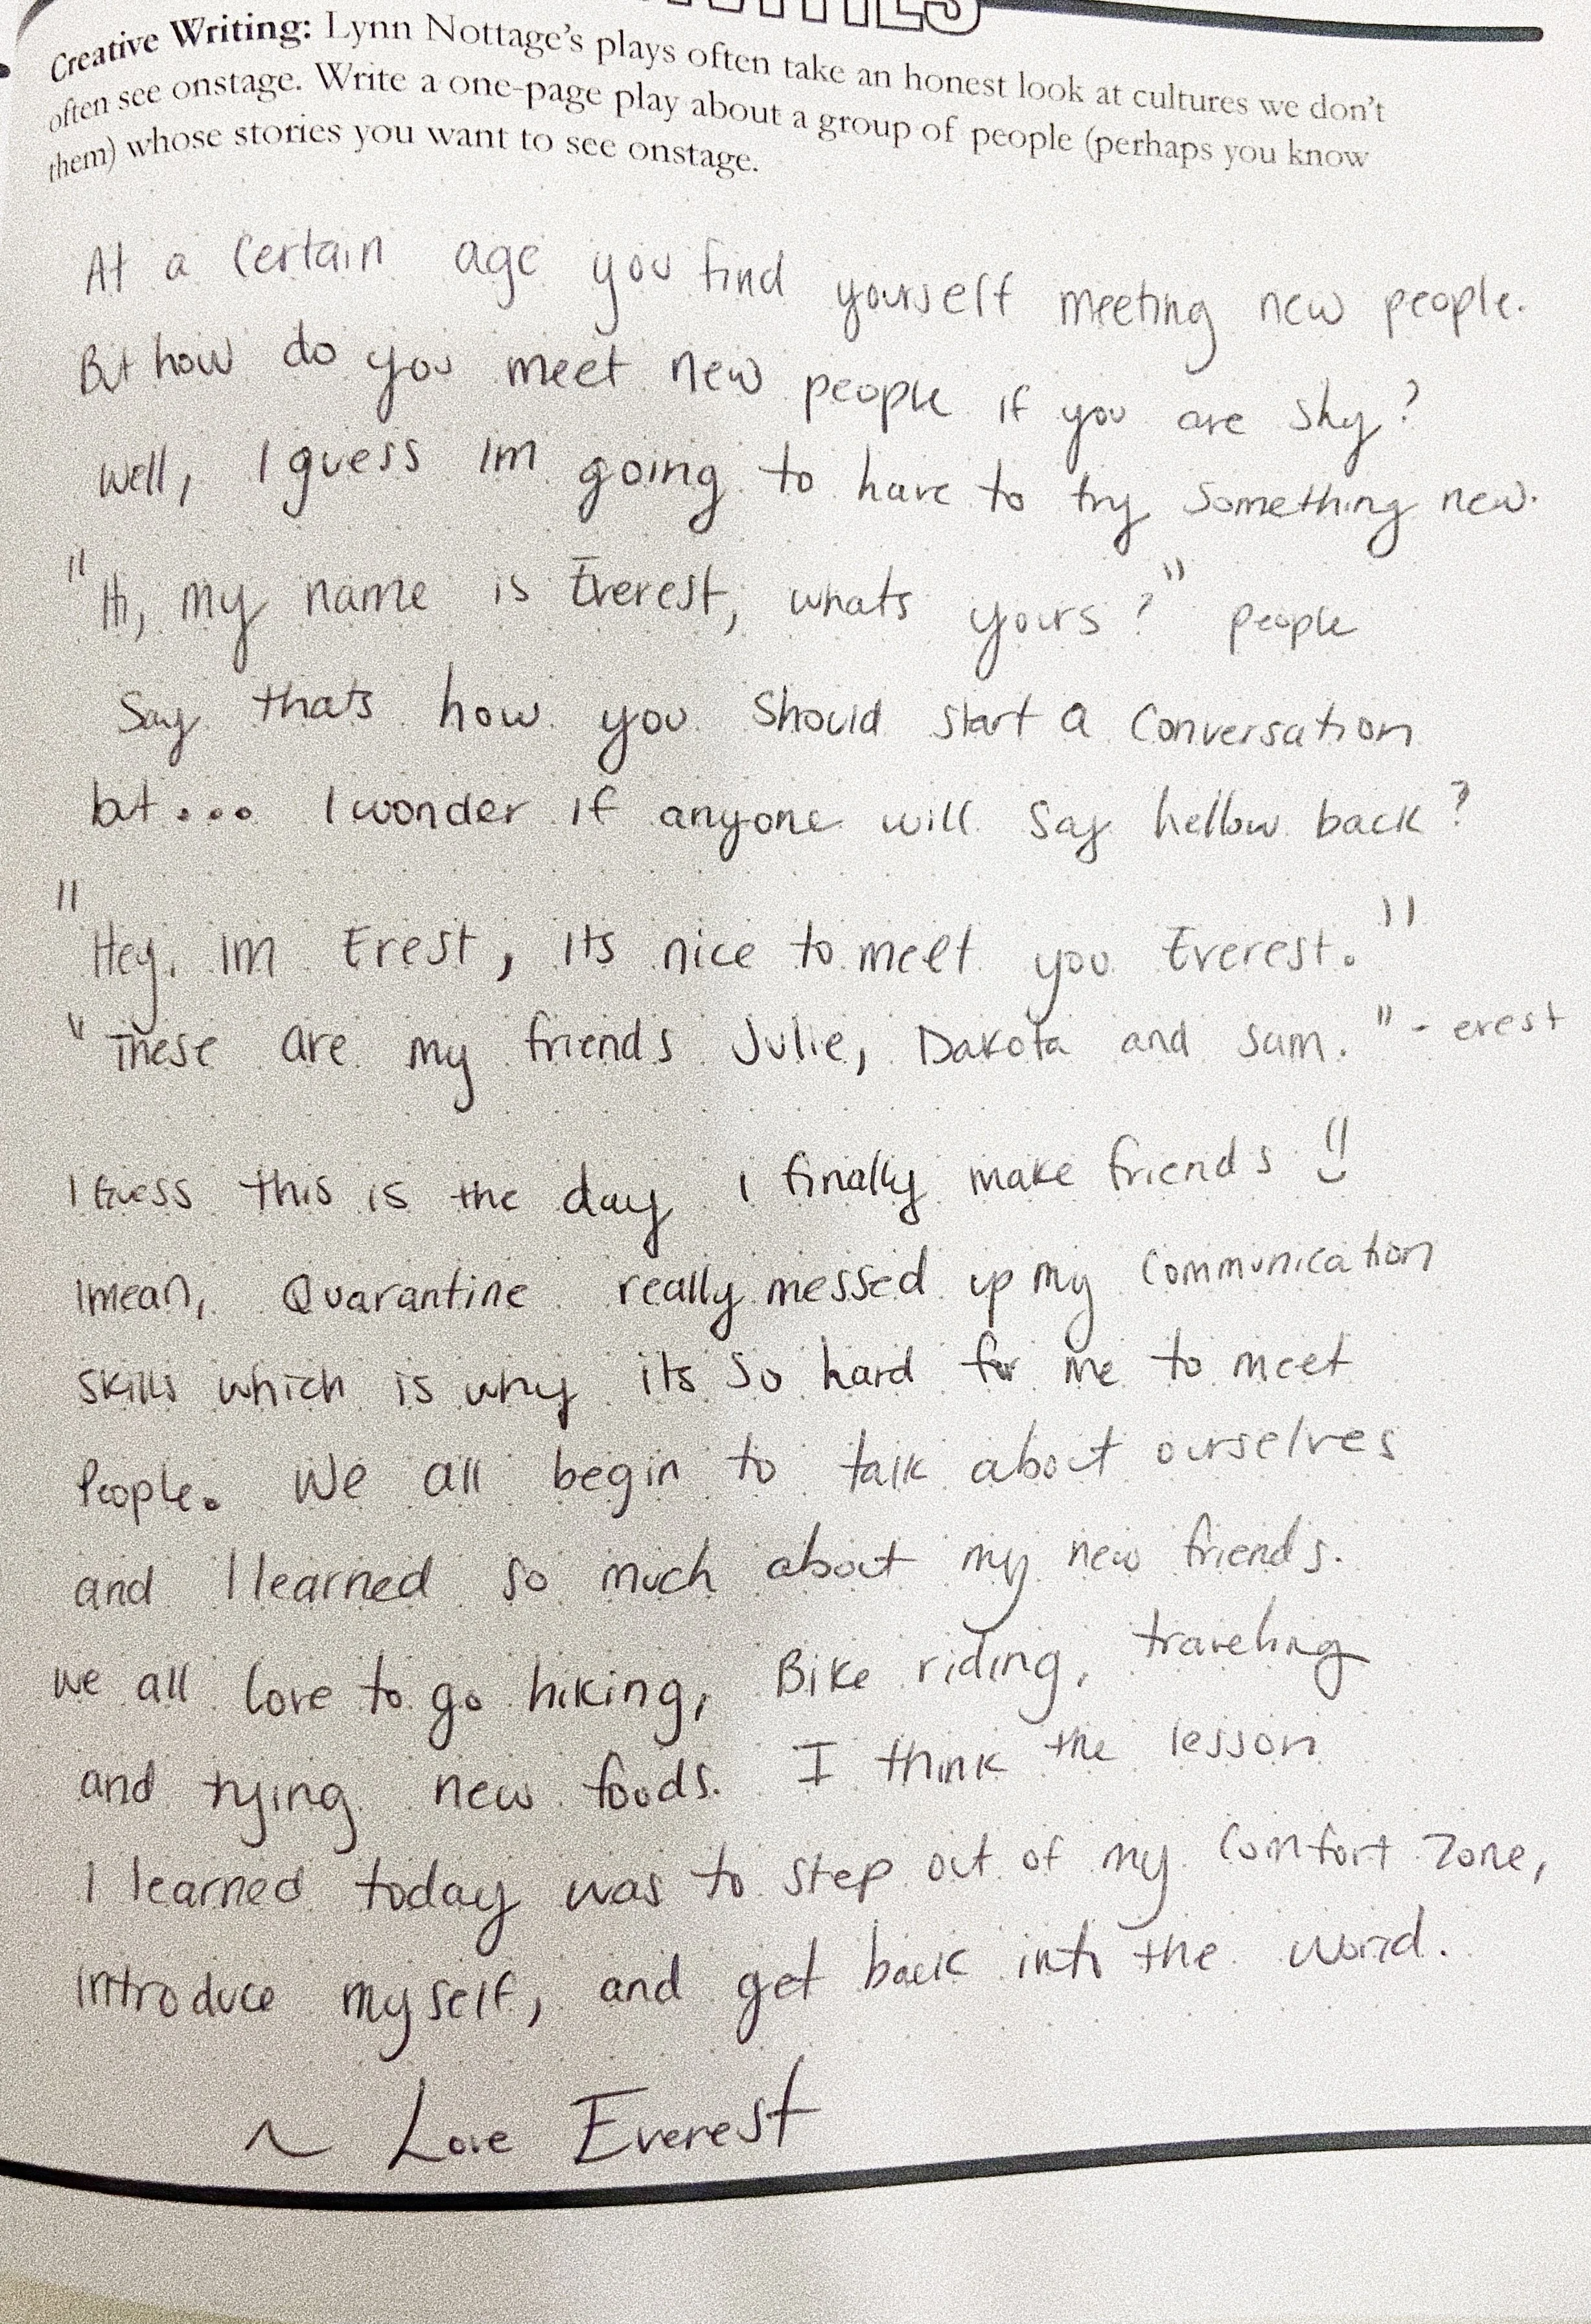 Creative Writing: Lynn Nottage's plays often take an honest look at cultures we don't
often see onstage. Write a one-page play about a group of people (perhaps you know
them) whose stories you want to see onstage.
At a certain age you find yourself meeting new people.
But how do you meet new people if you are shy?
Well, I guess Im going to have to try something new.
"Hi, my name is Everest, whats yours?" people
Say thats how you should start a conversation
but... I wonder if anyone will say hellow back?
"Hey, im Erest, its nice to meet you Everest."
"These are my friends Julie, Dakota and Sam." - erest
I Guess this is the day I finally make friends !!
I mean, Quarantine really messed up my communication
skills which is why its so hard for me to meet
People. We all begin to talk about ourselves
and I learned so much about my new friends.
we all love to go hiking, Bike riding, traveling
and trying new foods. I think the lesson
I learned today was to step out of my comfort zone,
introduce myself, and get back into the world.
~ Love Everest